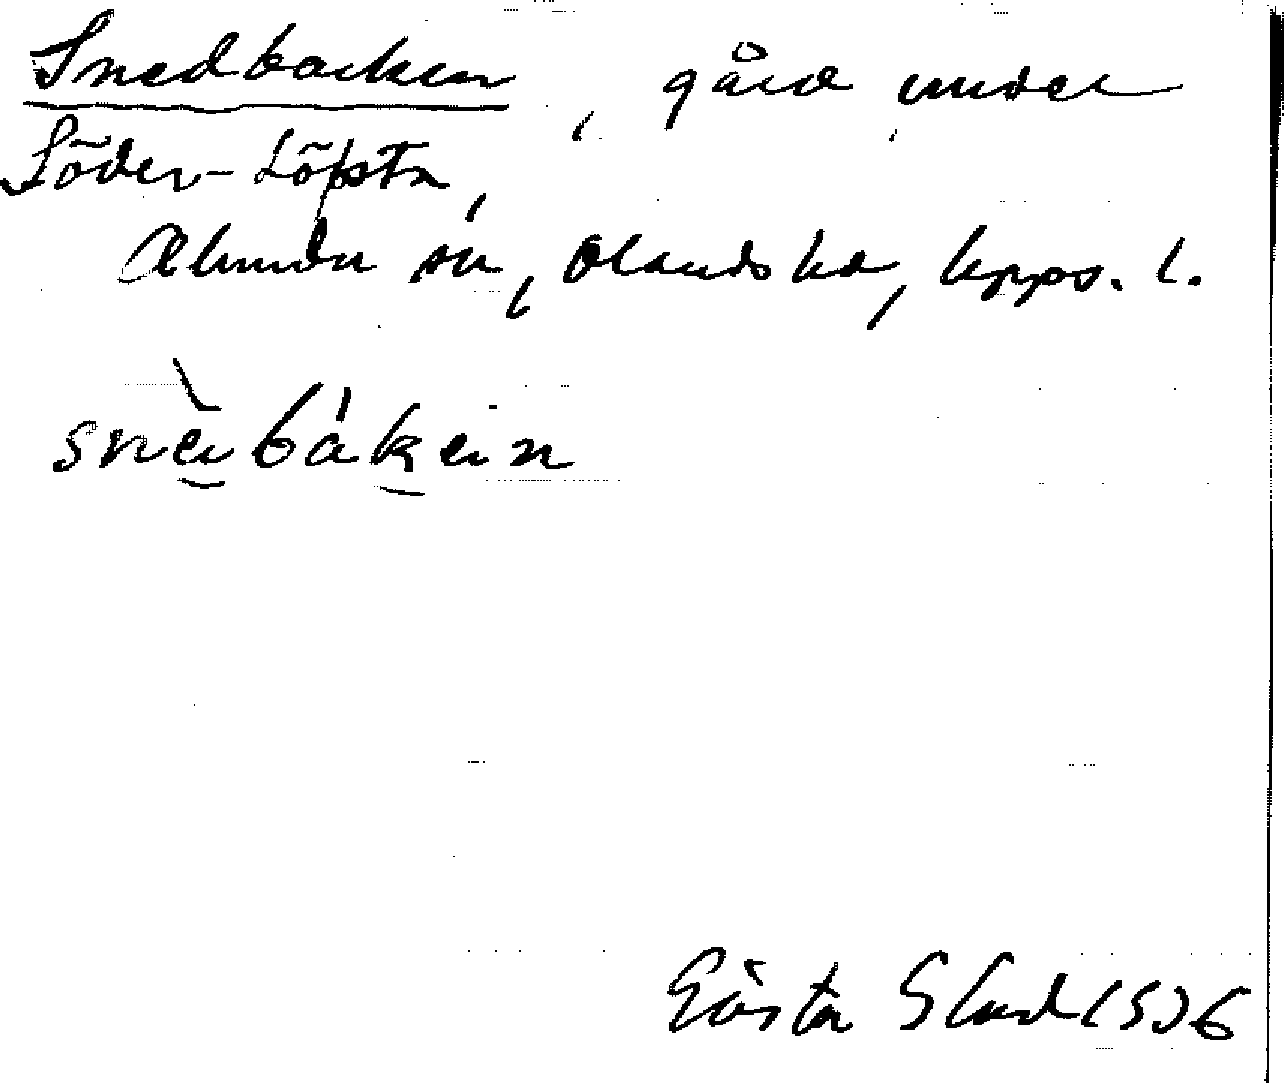 Snedbacken, gård under
Söder-Löpsta,
Alunda sn, Olands hd, Upps. l.
snèbákɐn
Gösta